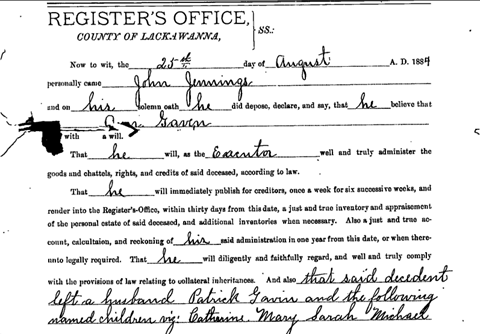 REGISTER'S OFFICE, } SS:
COUNTY OF LACKAWANNA,
Now to wit, the 25th day of August A. D. 1884
personally came John Jennings
and on his solemn oath he did depose, declare, and say, that he believe that
Gaven
with a will.
That he will, as the Executor well and truly administer the
goods and chattels, rights, and credits of said deceased, according to law.
That he will immediately publish for creditors, once a week for six successive weeks, and
render into the Register's-Office, within thirty days from this date, a just and true inventory and appraisement
of the personal estate of said deceased, and additional inventories when necessary. Also a just and true ac-
count, calcultaion, and reckoning of his said administration in one year from this date, or when there-
unto legally required. That he will diligently and faithfully regard, and well and truly comply
with the provisions of law relating to collateral inheritances. And also that said decedent
left a husband Patrick Gavin and the following
named children viz: Catherine Mary Sarah Michael